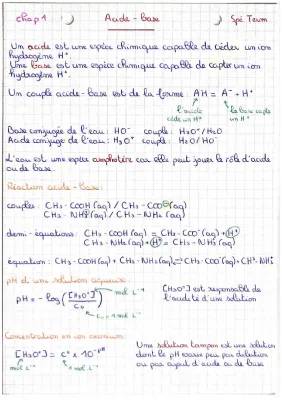 Chap 1 Acide - Base Spé Term
Un acide est une espèce chimique capable de céder un ion
hydrogène H⁺.
Une base est une espèce chimique capable de capter un ion
hydrogène H⁺.
Un couple acide-base est de la forme : AH = A⁻ + H⁺
l'acide
cède un H⁺
la base capte
un H⁺
Base conjugée de l'eau : HO⁻ couple : H₂O/HO⁻
Acide conjugé de l'eau : H₃O⁺ couple :
L'eau est une espèce amphotère car elle peut jouer le rôle d'acide
ou de base.
Réaction acide-base :
couples : CH₃-COOH(aq) / CH₃-COO⁻(aq)
CH₃-NH₃⁺(aq) / CH₃-NH₂(aq)
demi-équations : CH₃-COOH(aq) = CH₃-COO⁻(aq) + H⁺
CH₃-NH₂(aq) + H⁺ = CH₃-NH₃⁺(aq)
équation : CH₃-COOH(aq) + CH₃-NH₂(aq) ⇌ CH₃-COO⁻(aq) +
pH d'une solution aqueuse :
pH = - log ([H₃O⁺] / C₀)
mol L⁻¹
[H₃O⁺] est responsable de
l'acidité d'une solution
Concentration en ion oxonium :
[H₃O⁺] = c° × 10^-pH
mol L⁻¹
Une solution tampon est une solution
dont le pH varie peu par dilution
ou par ajout d'acide ou de base.